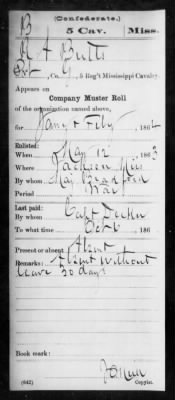 B
(Confederate.)
5 Cav. Miss.
Butts
Pvt, Co. G, 5 Reg't Mississippi Cavalry.
Appears on
Company Muster Roll
of the organization named above,
for Jany & Feby, 1864
Enlisted:
When May 12, 1863
Where Jackson Miss
By whom Maj. Bradford
Period War
Last paid:
By whom Capt
To what time Oct, 186
Present or absent Absent
Remarks: Absent without
leave 30 days
Book mark:
(642)
Copyist.